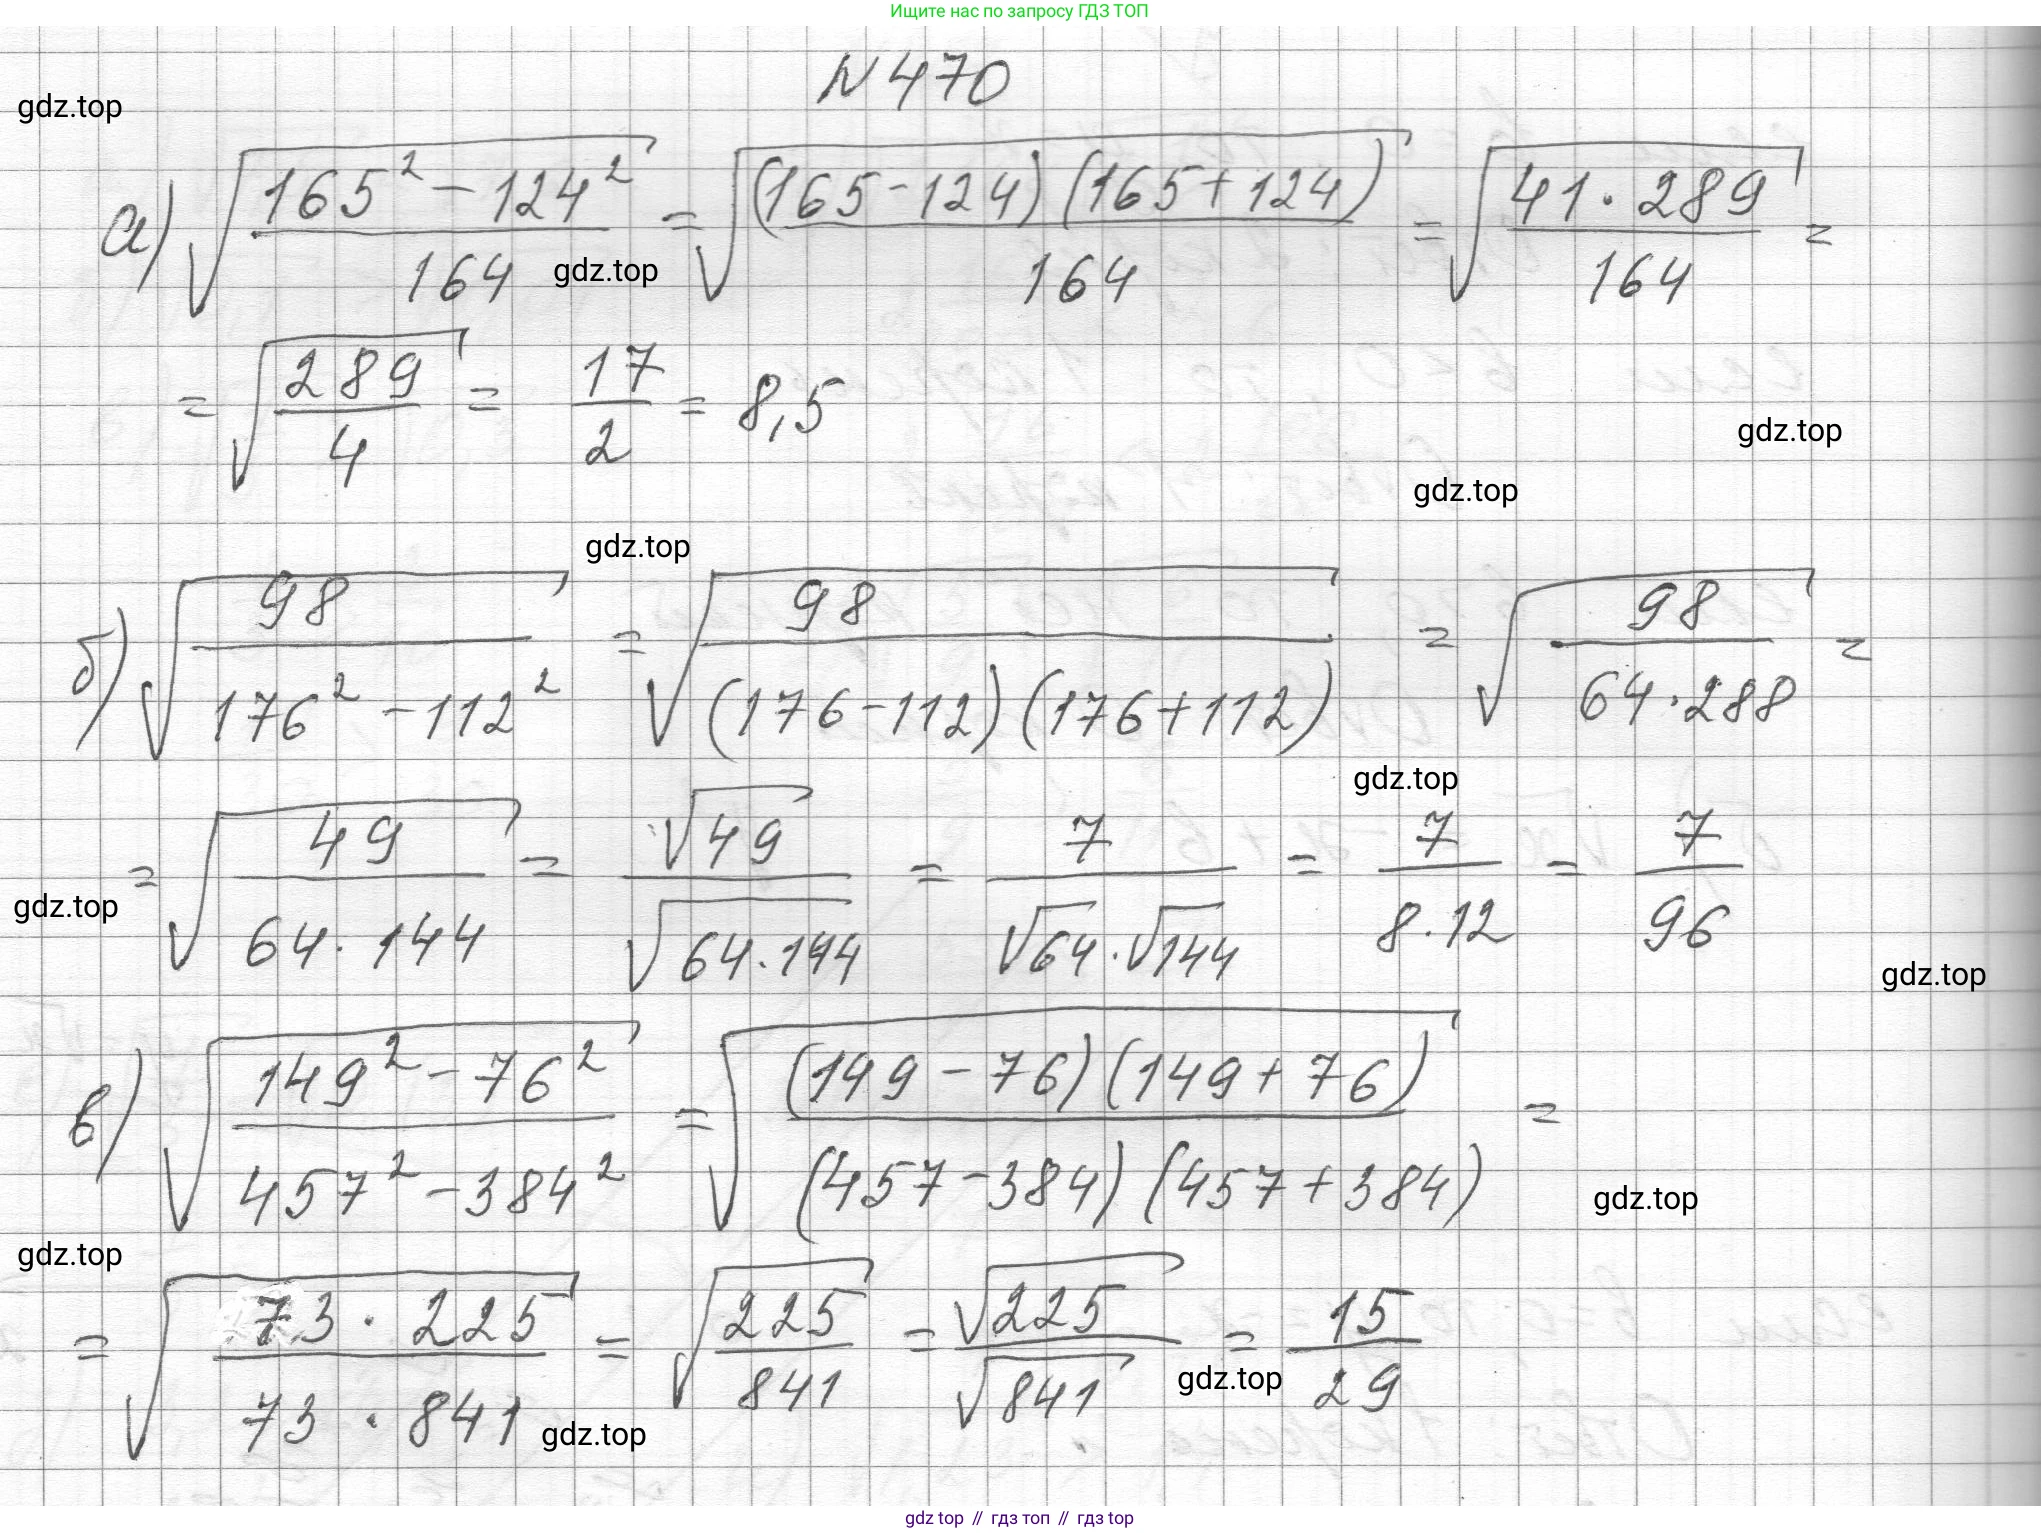 Ищите нас по запросу ГДЗ ТОП
N 470
gdz.top
а) √((165² − 124²)/164) = √((165 − 124)(165 + 124)/164) = √(41 · 289/164) =
gdz.top
= √(289/4) = 17/2 = 8,5
gdz.top
gdz.top
gdz.top
б) √(98/(176² − 112²)) = √(98/((176 − 112)(176 + 112))) = √(98/(64 · 288)) =
gdz.top
= √(49/(64 · 144)) = √49/√(64 · 144) = 7/(√64 · √144) = 7/(8 · 12) = 7/96
gdz.top
gdz.top
в) √((149² − 76²)/(457² − 384²)) = √((149 − 76)(149 + 76)/((457 − 384)(457 + 384))) =
gdz.top
gdz.top
= √(73 · 225/(73 · 841)) = √(225/841) = √225/√841 = 15/29
gdz.top
gdz.top
gdz top // гдз топ // гдз top